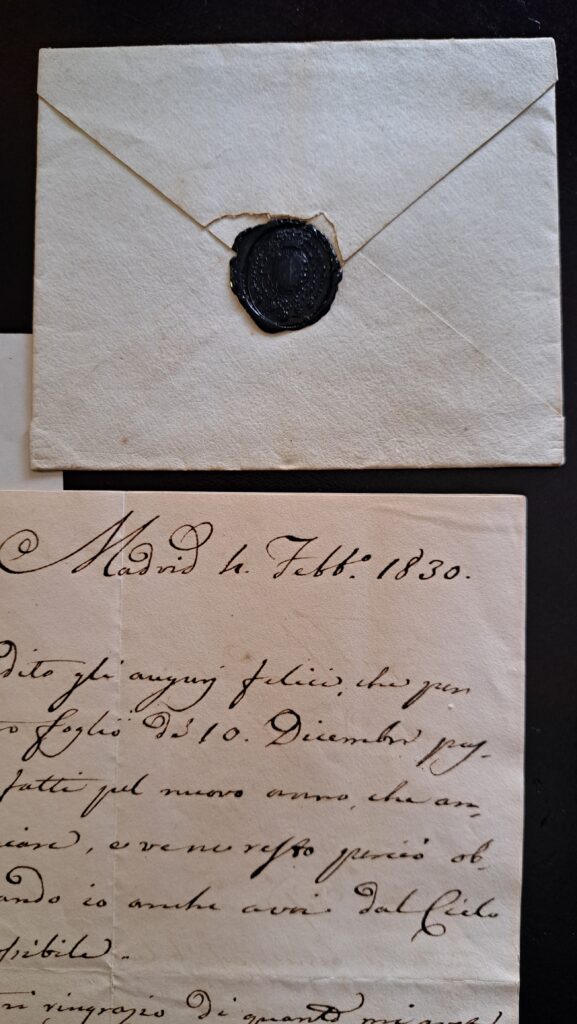 Madrid 4. Febb.o 1830.
dito gli augurj felici, che per
o foglio de' 10. Dicembre pas-
fatti pel nuovo anno, che an-
iare, e ve ne resto perciò ob-
ando io anche a voi dal Cielo
ssibile.
ringrazio di quanto mi